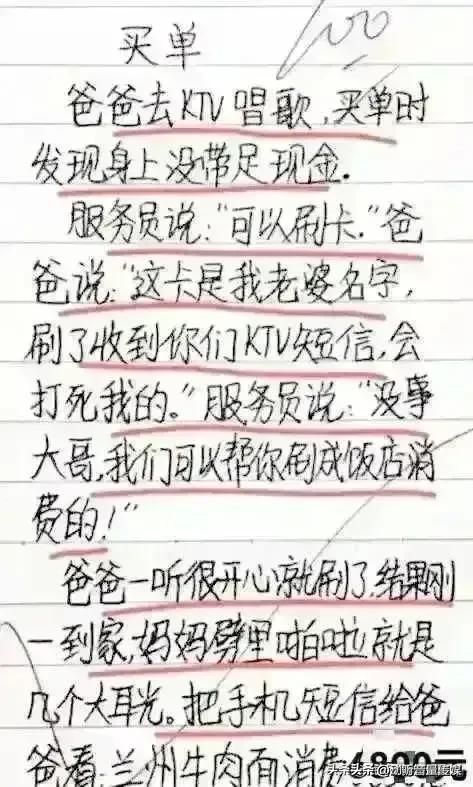 100
买单
爸爸去KTV唱歌,买单时
发现身上没带足现金.
服务员说:“可以刷卡.”爸
爸说:“这卡是我老婆名字,
刷了收到你们KTV短信,会
打死我的。”服务员说:“没事
大哥,我们可以帮你刷成饭店消
费的!”
爸爸一听很开心就刷了,结果刚
一到家,妈妈劈里啪啦就是
几个大耳光。把手机短信给爸
爸看:兰州牛肉面消费6800元
头条 @